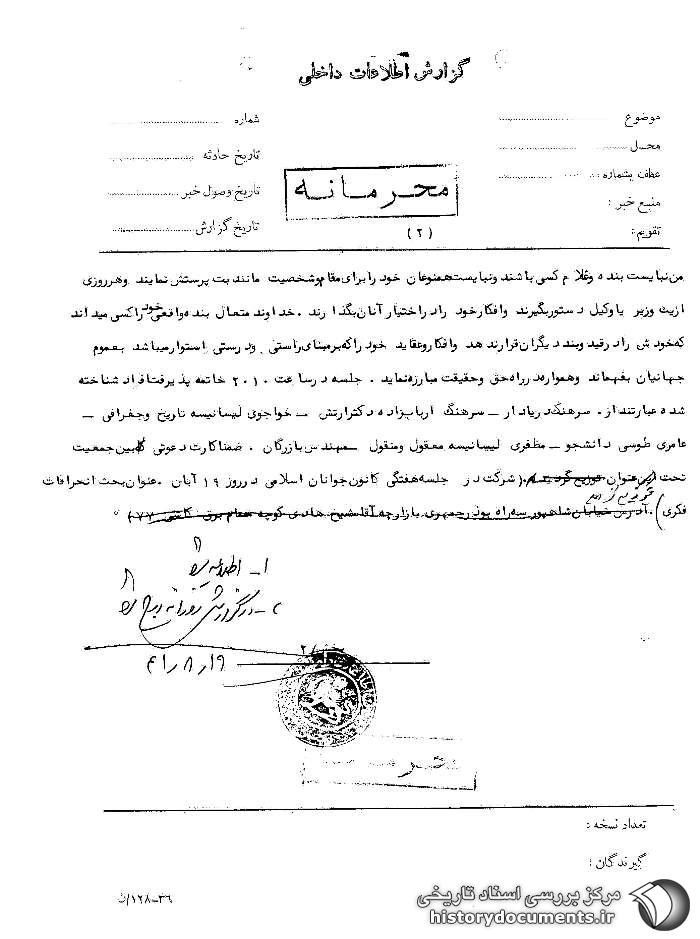 گزارش اطلاعات داخلی
موضوع
شماره
محل
تاریخ حادثه
عطف بشماره
تاریخ وصول خبر
منبع خبر :
تاریخ گزارش
تقویم:
محرمانه
(۲)
من نبایست بنده و غلام کسی باشند و نبایست همنوعان خود را برای مقام و شخصیت مانند بت پرستش نمایند و هر روزی
از یت وزیر یا وکیل دستور بگیرند و افکار خود را در اختیار آنان بگذارند . خداوند متعال بنده واقعی خود را کسی میداند
که خودش را در قید و بند دیگران قرار ندهد و افکار و عقاید خود را که بر مبنای راستی و درستی استوار میباشد بعموم
جهانیان بفهماند و همواره در راه حق و حقیقت مبارزه نماید . جلسه در ساعت ۲۰۱۰ خاتمه پذیرفت افراد شناخته
شده عبارتند از . سرهنگ دریادار – سرهنگ اربابزاده دکتر ارتش – خواجوی لیسانسیه تاریخ و جغرافی –
عامری طوسی دانشجو – مظفری لیسانسیه معقول و منقول – مهندس بازرگان . ضمنا کارت دعوتی که بین جمعیت
تحت این عنوان توزیع گردید . (شرکت در جلسه هفتگی کانون جوانان اسلامی در روز ۱۹ آبان . عنوان بحث انحرافات
توزیع گردید
فکری) . آدرس خیابان شاهپور سه راه بوذرجمهری بازارچه آقا شیخ هادی کوچه
۱- اطلاعیه
۲- در گزارش روزانه درج
۴۱٫۸٫۱۹
تعداد نسخه :
گیرندگان :
۳۶–۱۲۸/ن
مرکز بررسی اسناد تاریخی
historydocuments.ir